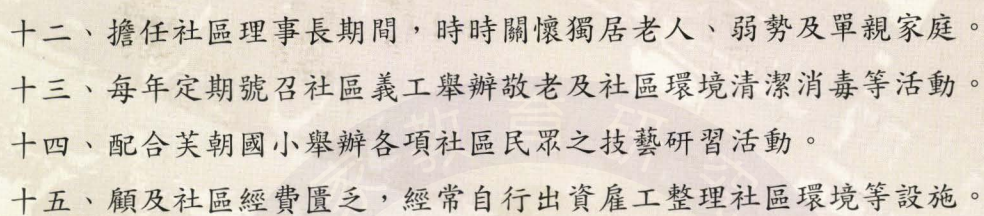 十二、擔任社區理事長期間，時時關懷獨居老人、弱勢及單親家庭。
十三、每年定期號召社區義工舉辦敬老及社區環境清潔消毒等活動。
十四、配合芙朝國小舉辦各項社區民眾之技藝研習活動。
十五、顧及社區經費匱乏，經常自行出資雇工整理社區環境等設施。